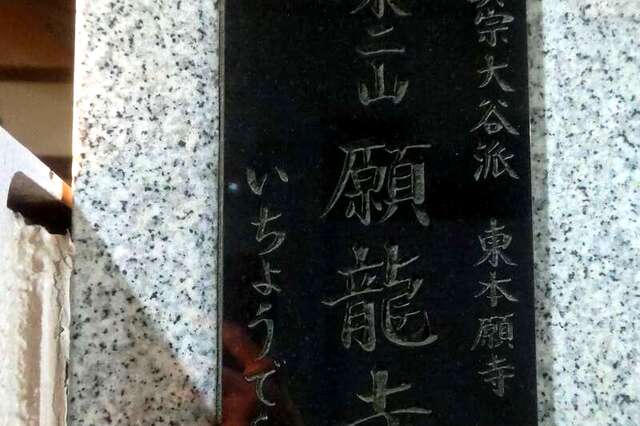 宗大谷派 東本願寺
二山 願龍寺
いちょうでら